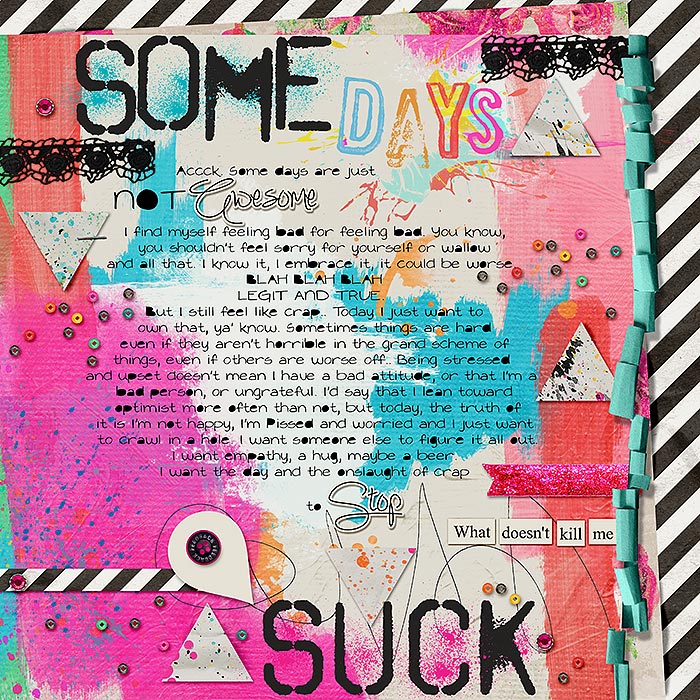 SOME
DAYS
Accck, Some days are just
NOT Awesome
I find myself feeling bad for feeling bad. You know,
you shouldn't feel sorry for yourself or wallow
and all that. I know it, I embrace it, it could be worse
BLAH BLAH BLAH
LEGIT AND TRUE.
But I still feel like crap.. Today I just want to
own that, ya' know. Sometimes things are hard
even if they aren't horrible in the grand scheme of
things, even if others are worse off.. Being stressed
and upset doesn't mean I have a bad attitude, or that I'm a
bad person, or ungrateful. I'd say that I lean toward
optimist more often than not, but today, the truth of
it is I'm not happy, I'm Pissed and worried and I just want
to crawl in a hole. I want someone else to figure it all out.
I want empathy, a hug, maybe a beer.
I want the day and the onslaught of crap
to Stop
What doesn't kill me
SUCK